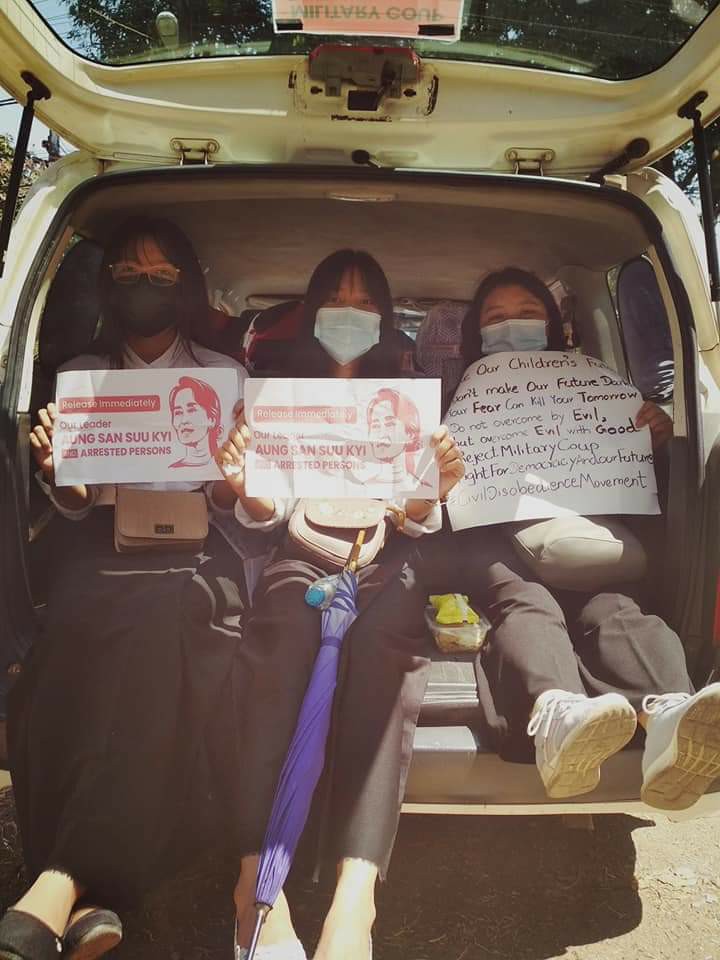 MILITARY COUP
Release Immediately
Our Leader
AUNG SAN SUU KYI
ARRESTED PERSONS
Release Immediately
Our Leader
AUNG SAN SUU KYI
ARRESTED PERSONS
Our Children's
Don't make Our Future
Your Fear Can Kill Your Tomorrow
Do not overcome by Evil,
but overcome Evil with Good
Reject Military Coup
FightForDemocracyAndourFuture
#CivilDisobedienceMovement